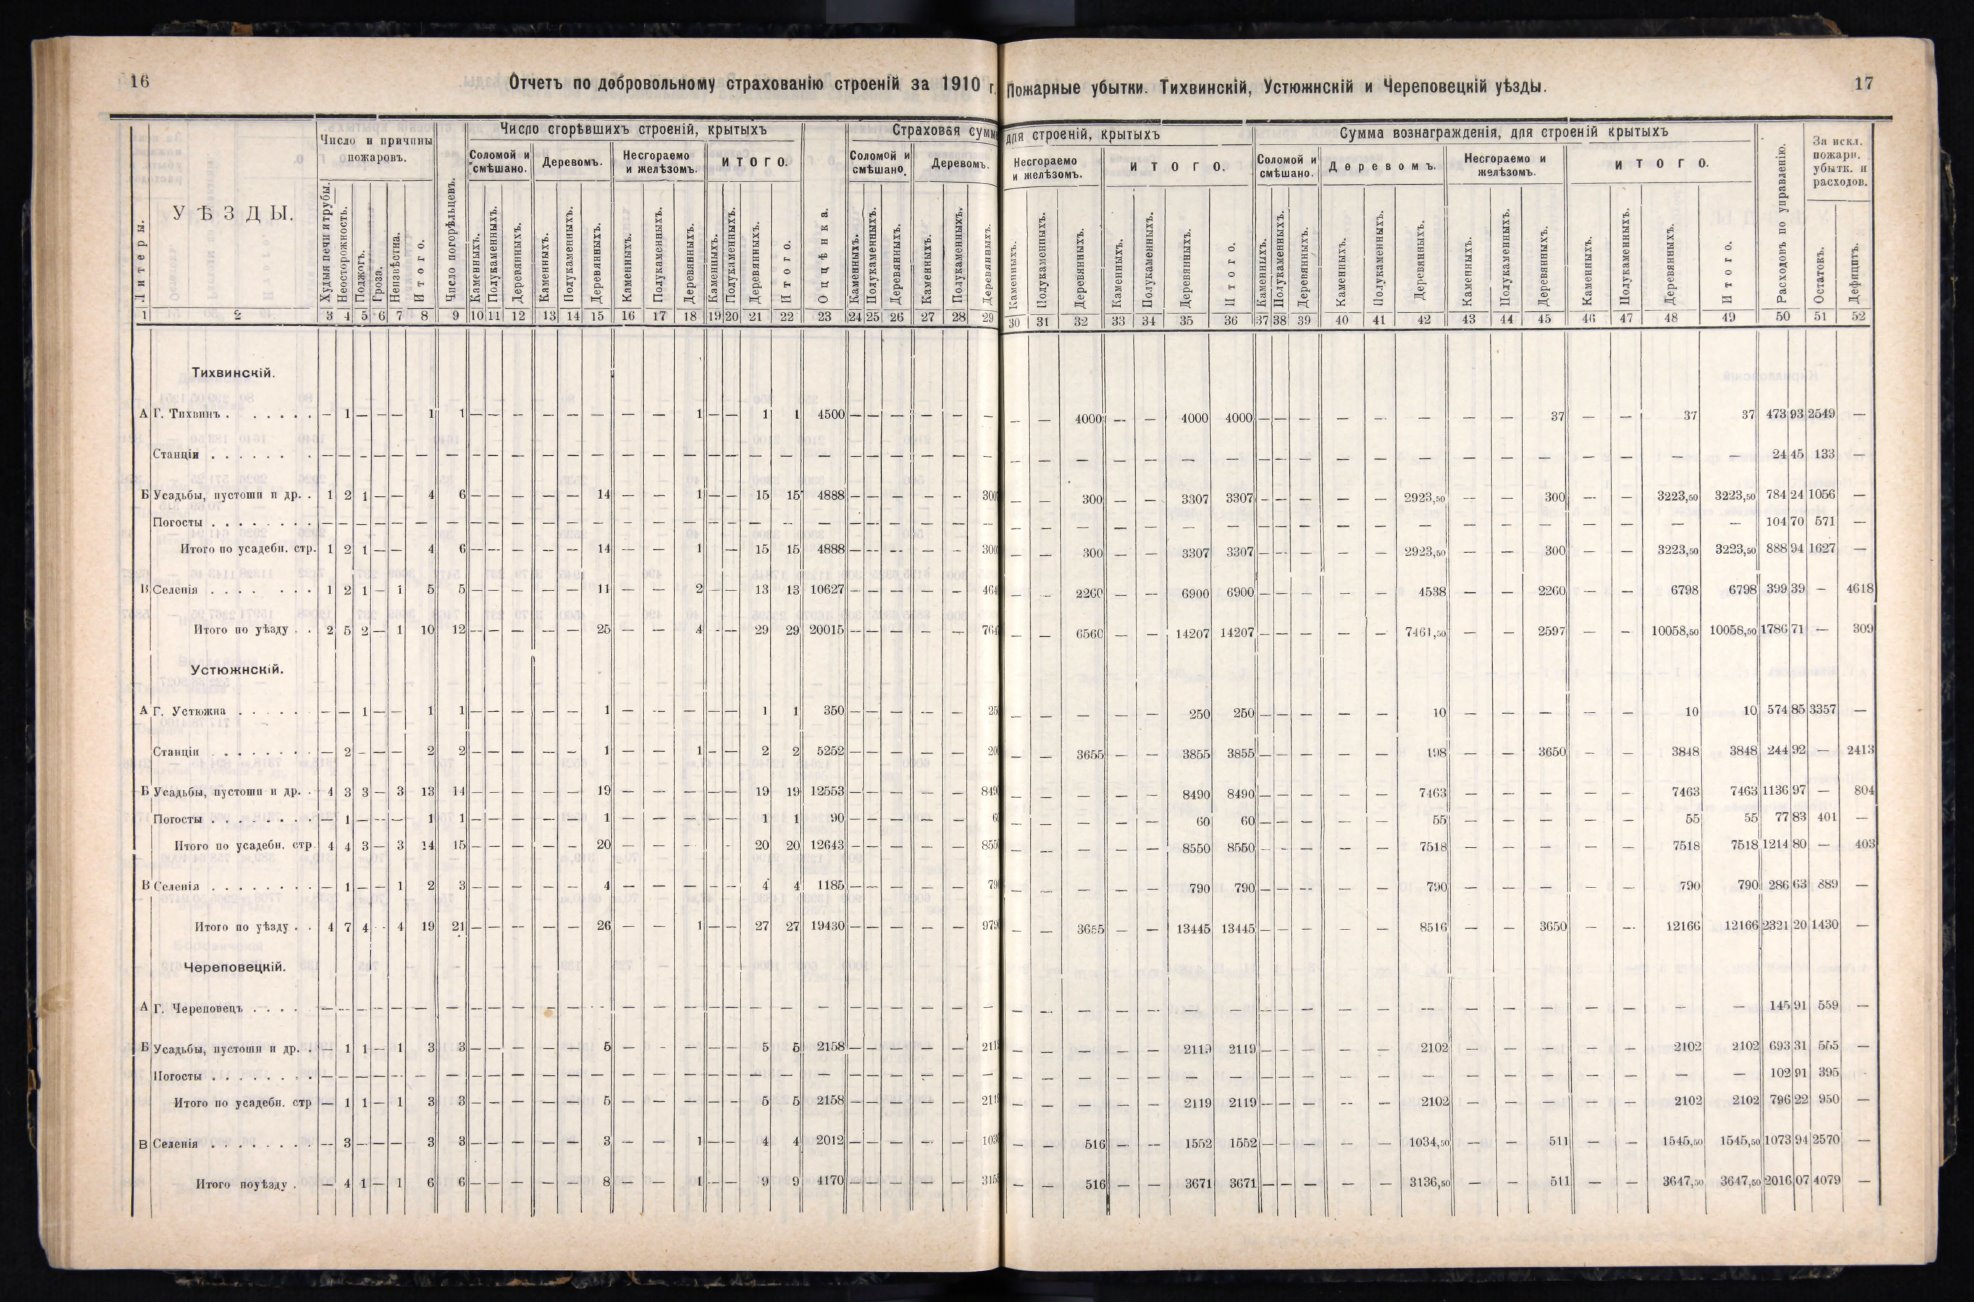 16
Отчетъ по добровольному страхованію строеній за 1910 г.
Пожарные убытки. Тихвинскій, Устюжнскій и Череповецкій уѣзды.
17
Литеры.
УѢЗДЫ.
Число и причины пожаровъ.
Худыя печи и трубы.
Неосторожность.
Поджогъ.
Гроза.
Неизвѣстна.
Итого.
Число погорѣльцевъ.
Число сгорѣвшихъ строеній, крытыхъ
Соломой и смѣшано.
Деревомъ.
Несгораемо и желѣзомъ.
ИТОГО.
Каменныхъ.
Полукаменныхъ.
Деревянныхъ.
Каменныхъ.
Полукаменныхъ.
Деревянныхъ.
Каменныхъ.
Полукаменныхъ.
Деревянныхъ.
Каменныхъ.
Полукаменныхъ.
Деревянныхъ.
Итого.
Оцѣнка.
Страховая сумма для строеній, крытыхъ
Соломой и смѣшано.
Деревомъ.
Несгораемо и желѣзомъ.
ИТОГО.
Каменныхъ.
Полукаменныхъ.
Деревянныхъ.
Каменныхъ.
Полукаменныхъ.
Деревянныхъ.
Каменныхъ.
Полукаменныхъ.
Деревянныхъ.
Каменныхъ.
Полукаменныхъ.
Деревянныхъ.
Итого.
Сумма вознагражденія, для строеній крытыхъ
Соломой и смѣшано.
Деревомъ.
Несгораемо и желѣзомъ.
ИТОГО.
Каменныхъ.
Полукаменныхъ.
Деревянныхъ.
Каменныхъ.
Полукаменныхъ.
Деревянныхъ.
Каменныхъ.
Полукаменныхъ.
Деревянныхъ.
Каменныхъ.
Полукаменныхъ.
Деревянныхъ.
Итого.
Расходовъ по управленію.
За искл. пожарн. убытк. и расходов.
Остатокъ.
Дефицитъ.
1 2 3 4 5 6 7 8 9 10 11 12 13 14 15 16 17 18 19 20 21 22 23 24 25 26 27 28 29 30 31 32 33 34 35 36 37 38 39 40 41 42 43 44 45 46 47 48 49 50 51 52
Тихвинскій.
А Г. Тихвинъ . . . . . . — 1 — — — 1 1 — — — — — — — — 1 — — 1 1 4500 — — — — — — — — 4000 — — 4000 4000 — — — — — — — — 37 — — 37 37 473 93 2549 —
Станціи . . . . . . . — — — — — — — — — — — — — — — — — — — — — — — — — — — — — — — — — — — — — — — — — — — — — — — 24 45 133 —
Б Усадьбы, пустоши и др. . 1 2 1 — — 4 6 — — — — — 14 — — 1 — — 15 15 4888 — — — — — 300 — — 300 — — 3307 3307 — — — — — 2923,50 — — 300 — — 3223,50 3223,50 784 24 1056 —
Погосты . . . . . . . . — — — — — — — — — — — — — — — — — — — — — — — — — — — — — — — — — — — — — — — — — — — — — — — 104 70 571 —
Итого по усадебн. стр. 1 2 1 — — 4 6 — — — — — 14 — — 1 — 15 15 4888 — — — — — 300 — — 300 — — 3307 3307 — — — — — 2923,50 — — 300 — — 3223,50 3223,50 888 94 1627 —
В Селенія . . . . . . . 1 2 1 — 1 5 5 — — — — — 11 — — 2 — — 13 13 10627 — — — — — 464 — — 2260 — — 6900 6900 — — — — — 4538 — — 2260 — — 6798 6798 399 39 — 4618
Итого по уѣзду . . 2 5 2 — 1 10 12 — — — — — 25 — — 4 — — 29 29 20015 — — — — — 764 — — 6560 — — 14207 14207 — — — — — 7461,50 — — 2597 — — 10058,50 10058,50 1786 71 — 309
Устюжнскій.
А Г. Устюжна . . . . . — — 1 — — 1 1 — — — — — 1 — — — — — 1 1 350 — — — — — 25 — — — — — 250 250 — — — — — 10 — — — — — 10 10 574 85 3357 —
Станціи . . . . . . . — 2 — — — 2 2 — — — — — 1 — — 1 — — 2 2 5252 — — — — — 20 — — 3655 — — 3855 3855 — — — — — 198 — — 3650 — — 3848 3848 244 92 — 2413
Б Усадьбы, пустоши и др. . 4 3 3 — 3 13 14 — — — — — 19 — — — — — 19 19 12553 — — — — — 849 — — — — — 8490 8490 — — — — — 7463 — — — — — 7463 7463 1136 97 — 804
Погосты . . . . . . . . — 1 — — — 1 1 — — — — — 1 — — — — — 1 1 90 — — — — — 6 — — — — — 60 60 — — — — — 55 — — — — — 55 55 77 83 401 —
Итого по усадебн. стр 4 4 3 — 3 14 15 — — — — — 20 — — — — — 20 20 12643 — — — — — 855 — — — — — 8550 8550 — — — — — 7518 — — — — — 7518 7518 1214 80 — 403
В Селенія . . . . . . . . — 1 — — 1 2 3 — — — — — 4 — — — — — 4 4 1185 — — — — — 79 — — — — — 790 790 — — — — — 790 — — — — — 790 790 286 63 889 —
Итого по уѣзду . . 4 7 4 — 4 19 21 — — — — — 26 — — 1 — — 27 27 19430 — — — — — 979 — — 3655 — — 13445 13445 — — — — — 8516 — — 3650 — — 12166 12166 2321 20 1430 —
Череповецкій.
А Г. Череповецъ . . . . — — — — — — — — — — — — — — — — — — — — — — — — — — — — — — — — — — — — — — — — — — — — — — — 145 91 559 —
Б Усадьбы, пустоши и др. . — 1 1 — 1 3 3 — — — — — 5 — — — — — 5 5 2158 — — — — — 211 — — — — — 2119 2119 — — — — — 2102 — — — — — 2102 2102 693 31 555 —
Погосты . . . . . . . . — — — — — — — — — — — — — — — — — — — — — — — — — — — — — — — — — — — — — — — — — — — — — — — 102 91 395 —
Итого по усадебн. стр — 1 1 — 1 3 3 — — — — — 5 — — — — — 5 5 2158 — — — — — 211 — — — — — 2119 2119 — — — — — 2102 — — — — — 2102 2102 796 22 950 —
В Селенія . . . . . . . . — 3 — — — 3 3 — — — — — 3 — — 1 — — 4 4 2012 — — — — — 103 — — 516 — — 1552 1552 — — — — — 1034,50 — — 511 — — 1545,50 1545,50 1073 94 2570 —
Итого поуѣзду . — 4 1 — 1 6 6 — — — — — 8 — — 1 — — 9 9 4170 — — — — — 315 — — 516 — — 3671 3671 — — — — — 3136,50 — — 511 — — 3647,50 3647,50 2016 07 4079 —